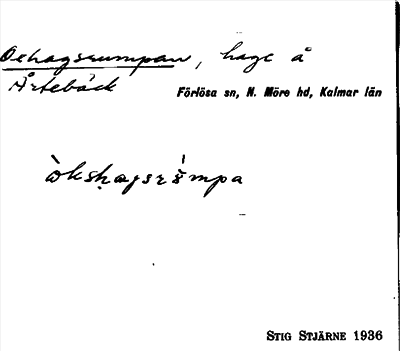 Oxhagsrumpan, hage å
Ärtebäck
Förlösa sn, N. Möre hd, Kalmar län
STIG STJÄRNE 1936